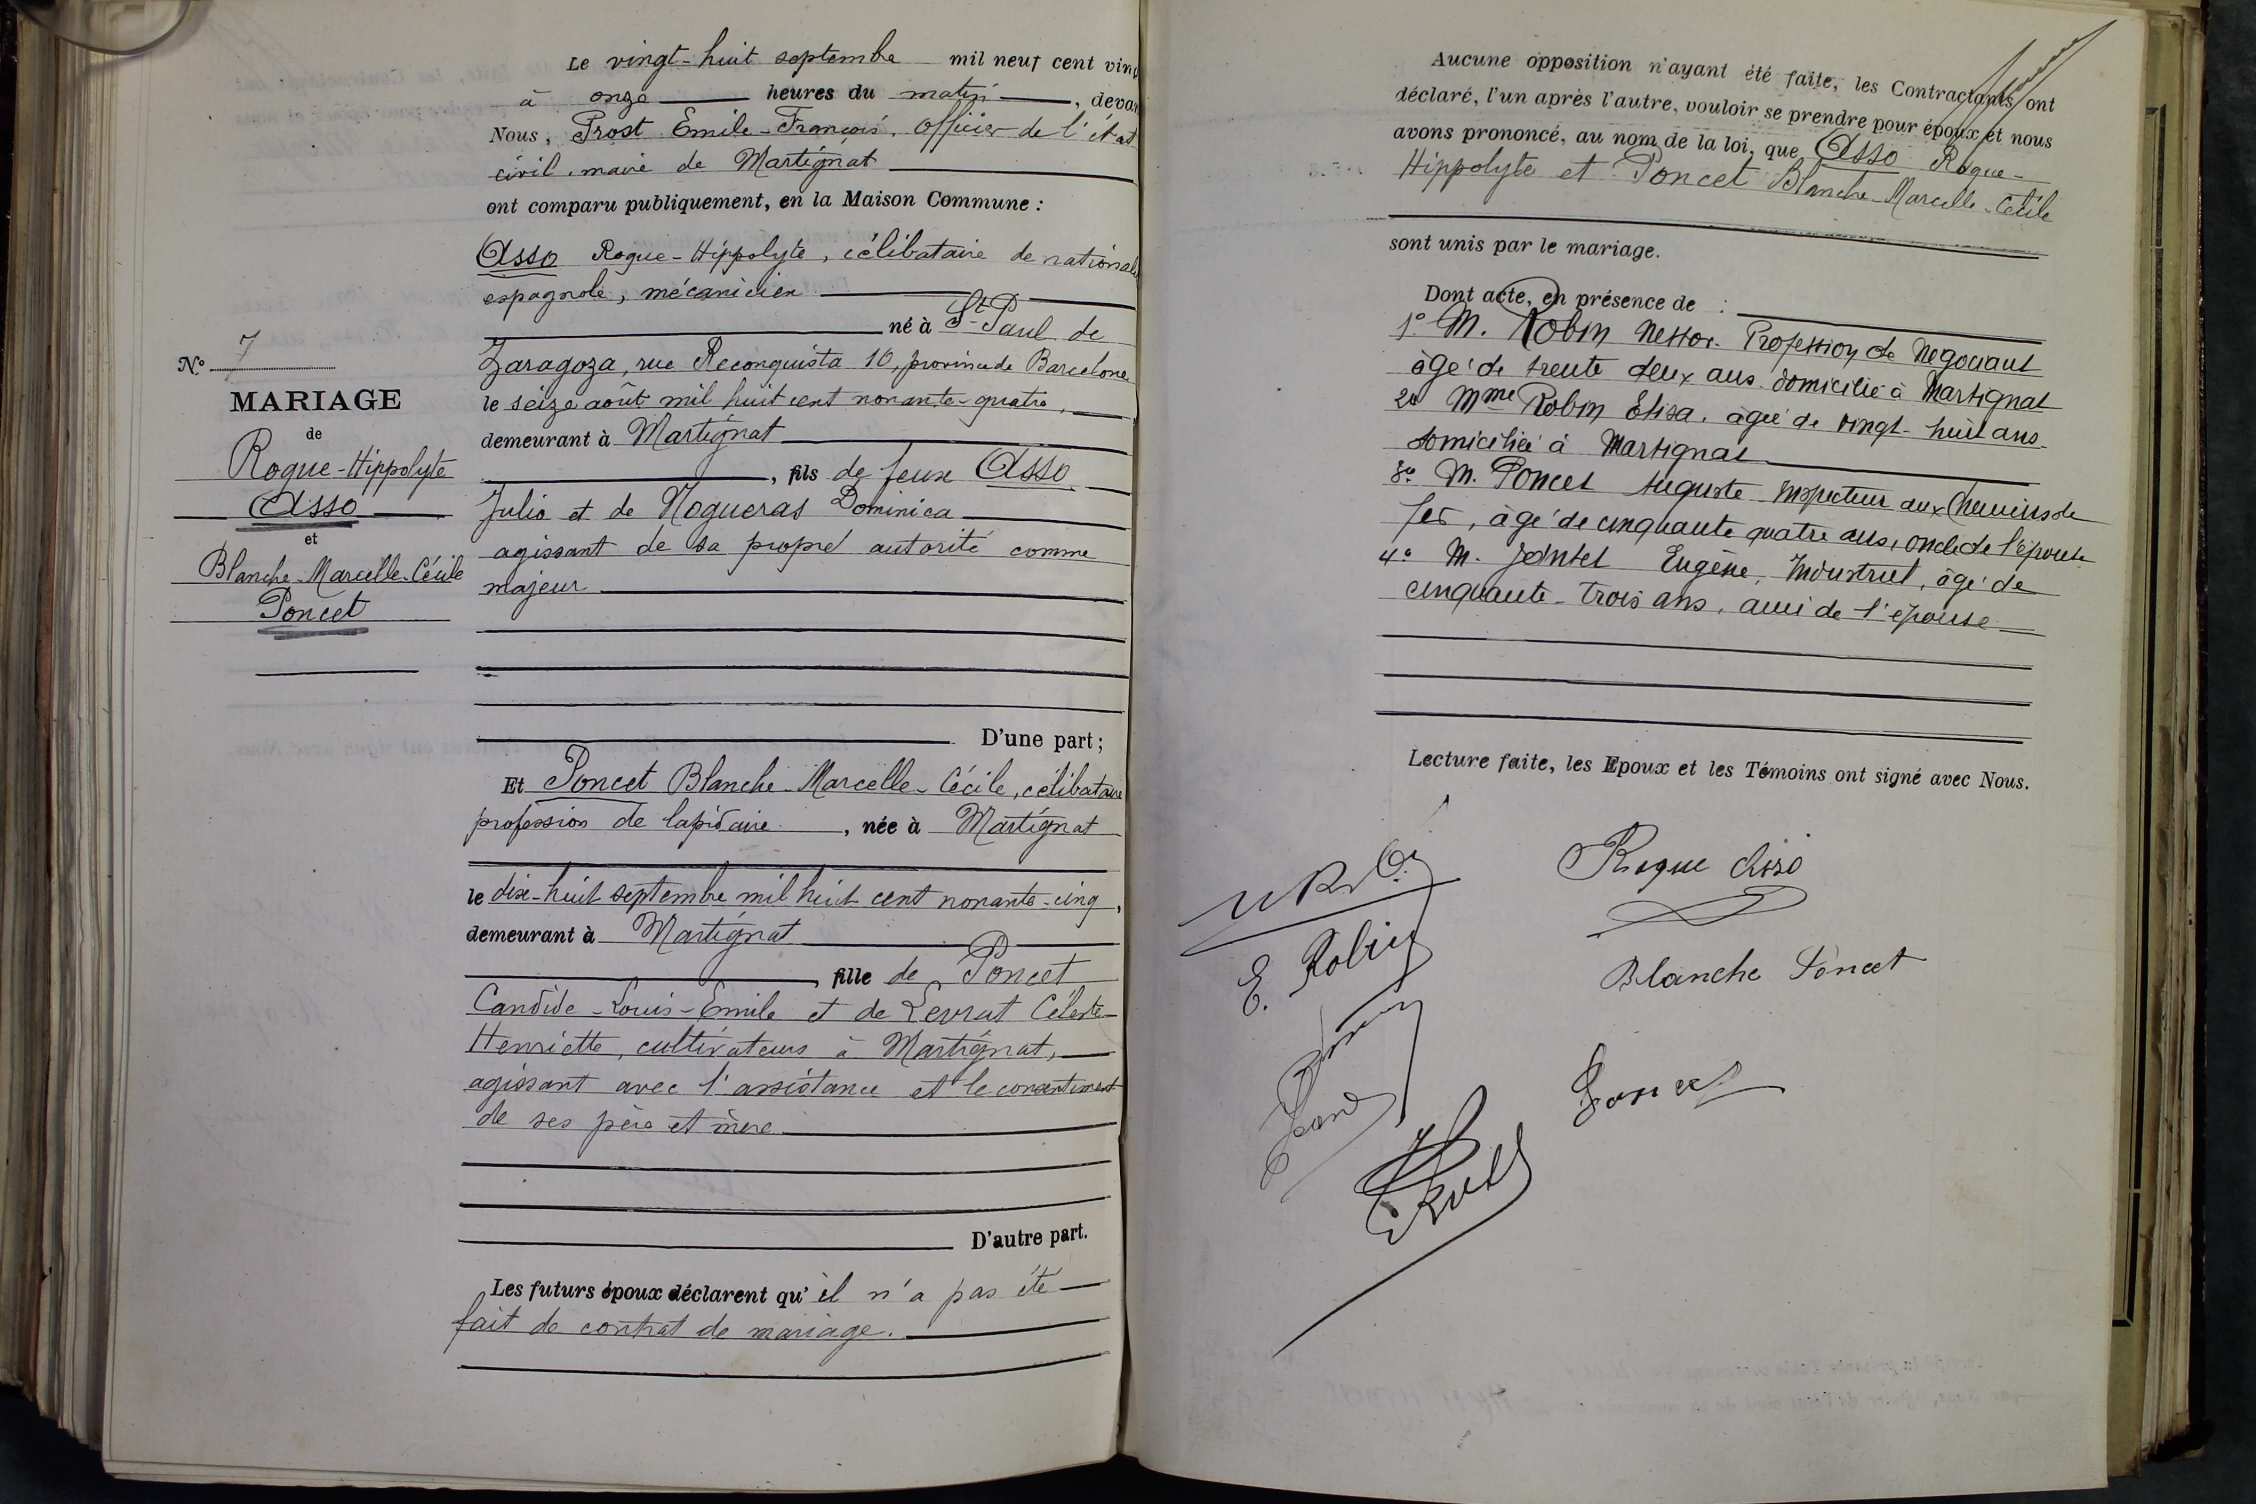 Le vingt-huit septembre mil neuf cent vingt
à onze heures du matin, devant
Nous, Prost Emile-François, officier de l'état
civil, maire de Martignat
ont comparu publiquement, en la Maison Commune :
Asso Roque-Hippolyte, célibataire de nationalité
espagnole, mécanicien
né à St-Paul de
Zaragoza, rue Reconquista 10, province de Barcelone
le seize août mil huit cent nonante-quatre,
demeurant à Martignat
, fils de feux Asso
Julio et de Nogueras Dominica
agissant de sa propre autorité comme
majeur
D'une part;
Et Poncet Blanche-Marcelle-Cécile, célibataire
profession de lapidaire, née à Martignat
le dix-huit septembre mil huit cent nonante-cinq,
demeurant à Martignat
, fille de Poncet
Candide-Louis-Emile et de Levrat Céleste-
Henriette, cultivateurs à Martignat,
agissant avec l'assistance et le consentement
de ses père et mère
D'autre part.
Les futurs époux déclarent qu'il n'a pas été
fait de contrat de mariage.
N° 7
MARIAGE
de
Roque-Hippolyte
Asso
et
Blanche-Marcelle-Cécile
Poncet
Aucune opposition n'ayant été faite, les Contractants ont
déclaré, l'un après l'autre, vouloir se prendre pour époux et nous
avons prononcé, au nom de la loi, que Asso Roque-
Hippolyte et Poncet Blanche-Marcelle-Cécile
sont unis par le mariage.
Dont acte, en présence de :
1° M. Robin Nestor. Profession de Négociant
âgé de trente deux ans domicilié à Martignat
2° Mme Robin Elisa, âgée de vingt-huit ans
domiciliée à Martignat
3° M. Poncet Auguste Inspecteur aux Chemins de
fer, âgé de cinquante quatre ans, oncle de l'épouse
4° M. Jointet Eugène, Industriel, âgé de
cinquante-trois ans, ami de l'épouse
Lecture faite, les Epoux et les Témoins ont signé avec Nous.
Roque Asso
E. Robin
Blanche Poncet
Poncet